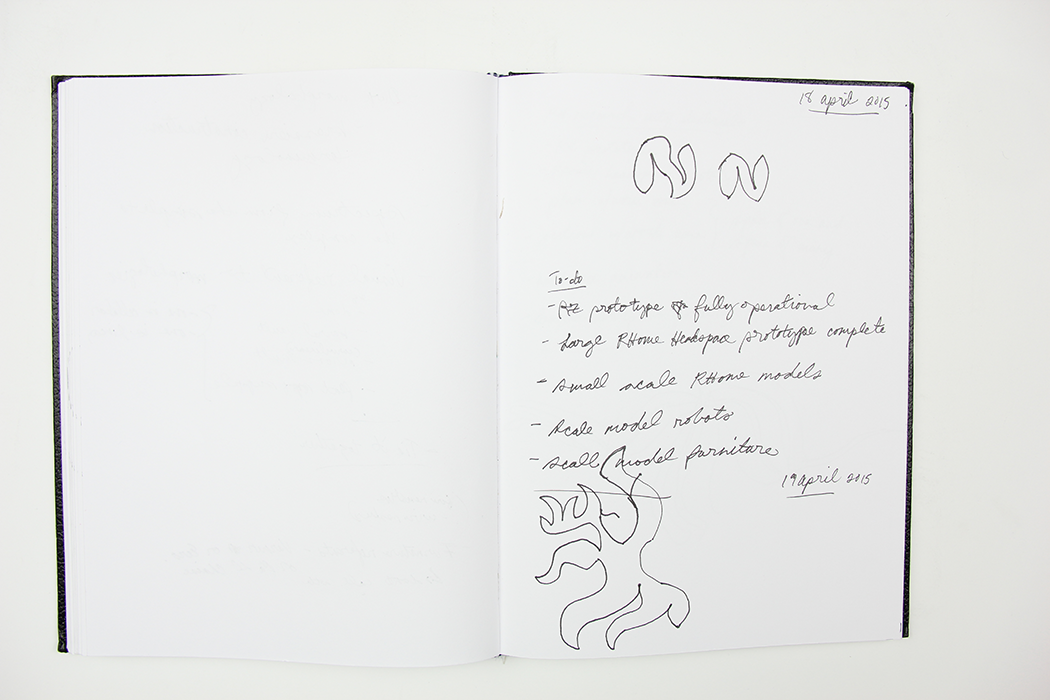 18 april 2015
To-do
- prototype fully operational
- Large RHome Headspace prototype complete
- small scale RHome models
- scale model robots
- scall model furniture
19 april 2015